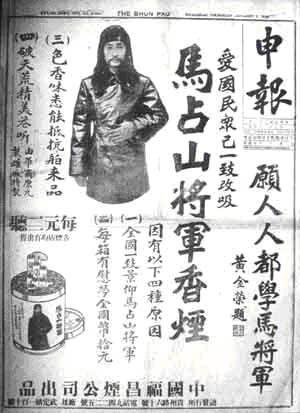 THE SHUN PAO
申報
願人人都學馬將軍
黃金榮題
愛國民衆已一致改吸
馬占山將軍香煙
因有以下四種原因
(一)全國一致景仰馬占山將軍
(二)每箱有慰勞金國幣拾元
(三)色香味悉能抵抗舶來品
(四)破天荒精美听
由華商康元
製罐廠特製
每元二聽
各煙店均有出售
中國福昌煙公司出品